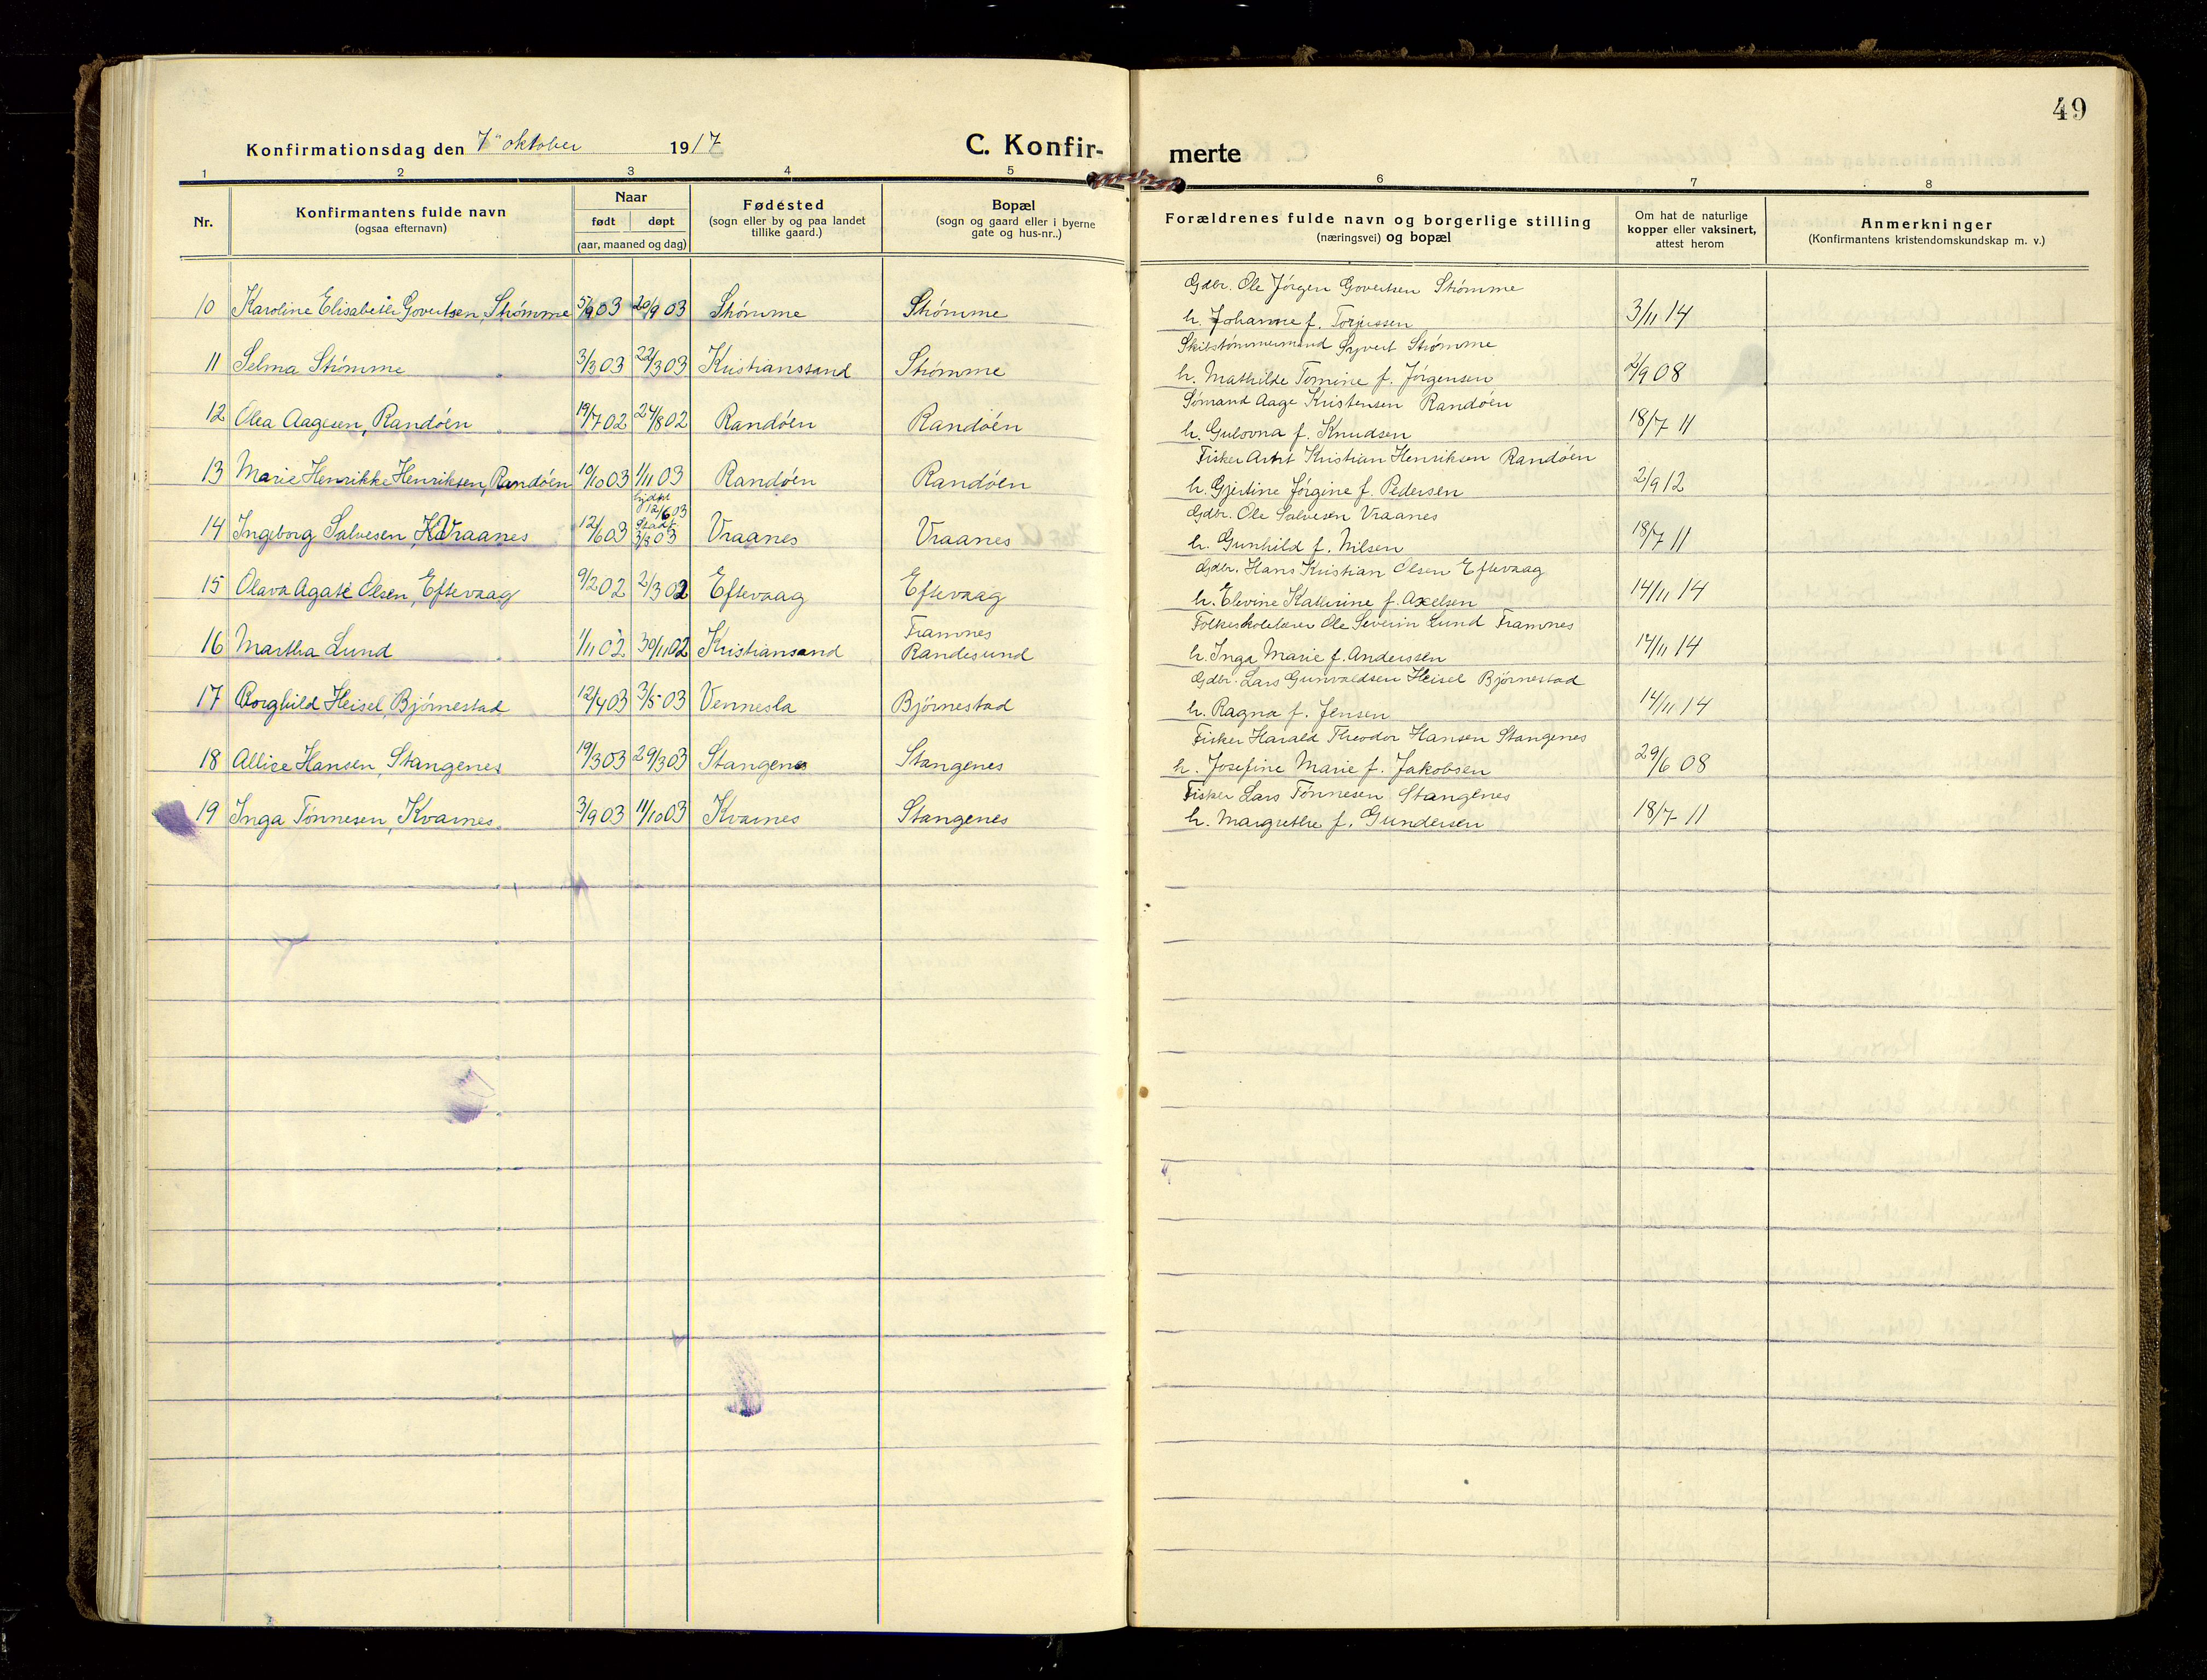 49
Konfirmationsdag den 7de oktober 1917
C. Konfir-
merte
1 2 3 4 5 6 7 8
Nr.
Konfirmantens fulde navn
(ogsaa efternavn)
Naar
født døpt
(aar, maaned og dag)
Fødested
(sogn eller by og paa landet
tillike gaard.)
Bopæl
(sogn og gaard eller i byerne
gate og hus-nr..)
Forældrenes fulde navn og borgerlige stilling
(næringsvei) og bopæl
Om hat de naturlige
kopper eller vaksinert,
attest herom
Anmerkninger
(Konfirmantens kristendomskundskap m. v.)
Gdbr. Ole Jörgen Govertsen Strömme
10 Karoline Elisabeth Govertsen, Strömme 5/9 03 20/9 03 Strömme Strömme
h. Johanne f. Torjussen 3/11 14
Skibstömmermand Syvert Strömme
11 Selma Strömme 3/3 03 22/3 03 Kristianssand Strömme
h. Mathilde Tomine f. Jörgensen 2/9 08
Sömand Aage Kristensen Randöen
12 Olea Aagesen, Randöen 19/7 02 24/8 02 Randöen Randöen
h. Gulovna f. Knudsen 18/7 11
Fisker Arnt Kristian Henriksen Randöen
13 Marie Henrikke Henriksen, Randöen 10/10 03 1/11 03 Randöen Randöen
h. Gjertine Jörgine f. Pedersen 2/9 12
hjdpt 12/6 03
Gdbr. Ole Salvesen Vraanes
14 Ingeborg Salvesen, Vraanes 12/6 03 Stadf. 3/8 03 Vraanes Vraanes
h. Gunhild f. Nilsen 18/7 11
Gdbr. Hans Kristian Olsen Eftevaag
15 Olava Agate Olsen, Eftevaag 9/2 02 2/3 02 Eftevaag Eftevaag
h. Elevine Kathrine f. Axelsen 14/11 14
Folkeskolelærer Ole Severin Lund Framnes
16 Martha Lund 1/11 02 30/11 02 Kristiansand Framnes
Randesund
h. Inga Marie f. Anderssen 14/11 14
Gdbr. Lars Gunvaldsen Heisel Bjørnestad
17 Borghild Heisel, Bjørnestad 12/4 03 3/5 03 Vennesla Bjørnestad
h. Ragna f. Jensen 14/11 14
Fisker Harald Theodor Hansen Stangenes
18 Allice Hansen, Stangenes 19/3 03 29/3 03 Stangenes Stangenes
h. Josefine Marie f. Jakobsen 29/6 08
Fisker Lars Tönnesen Stangenes
19 Inga Tönnesen, Kvarnes. 3/9 03 11/10 03 Kvarnes Stangenes
h. Margrethe f. Gundersen 18/7 11